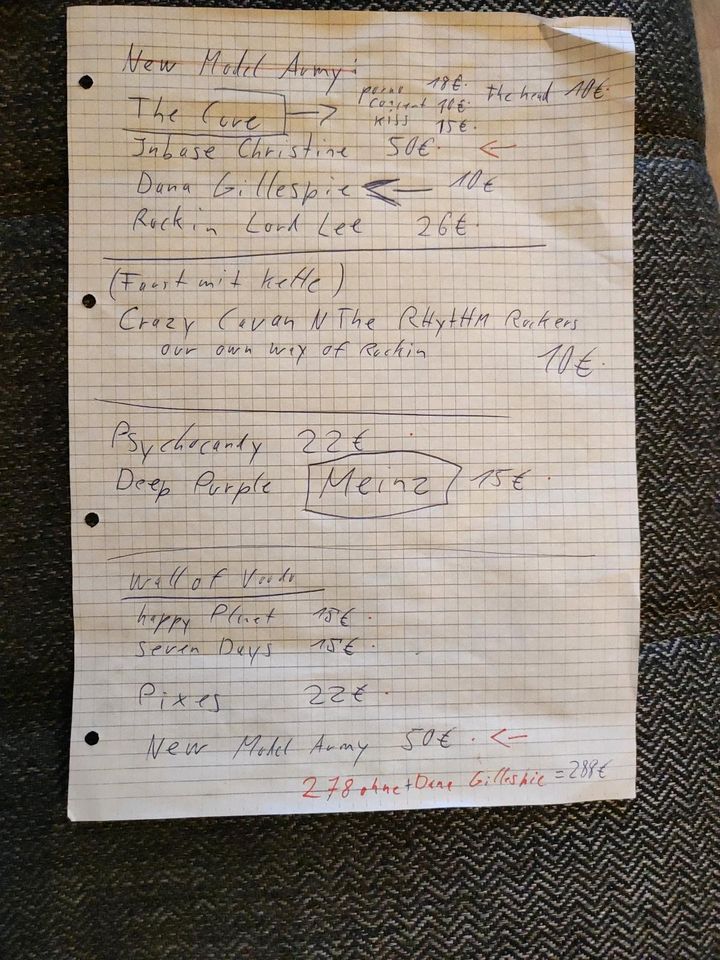 New Model Army:
porno 18€. The head 10€.
The Cure → concert 10€.
kiss 15€.
Inbase Christine 50€. ←
Dana Gillespie ← 10€
Rockin Lord Lee 26€.
(Faust mit Kette)
Crazy Cavan N The RHytHM Rockers
our own way of Rockin 10€.
Psychocandy 22€.
Deep Purple Meinz 15€.
Wall of Voodo
happy Planet 15€.
seven Days 15€.
Pixes 22€.
New Model Army 50€. ←
278 ohne + Dana Gillespie = 288€